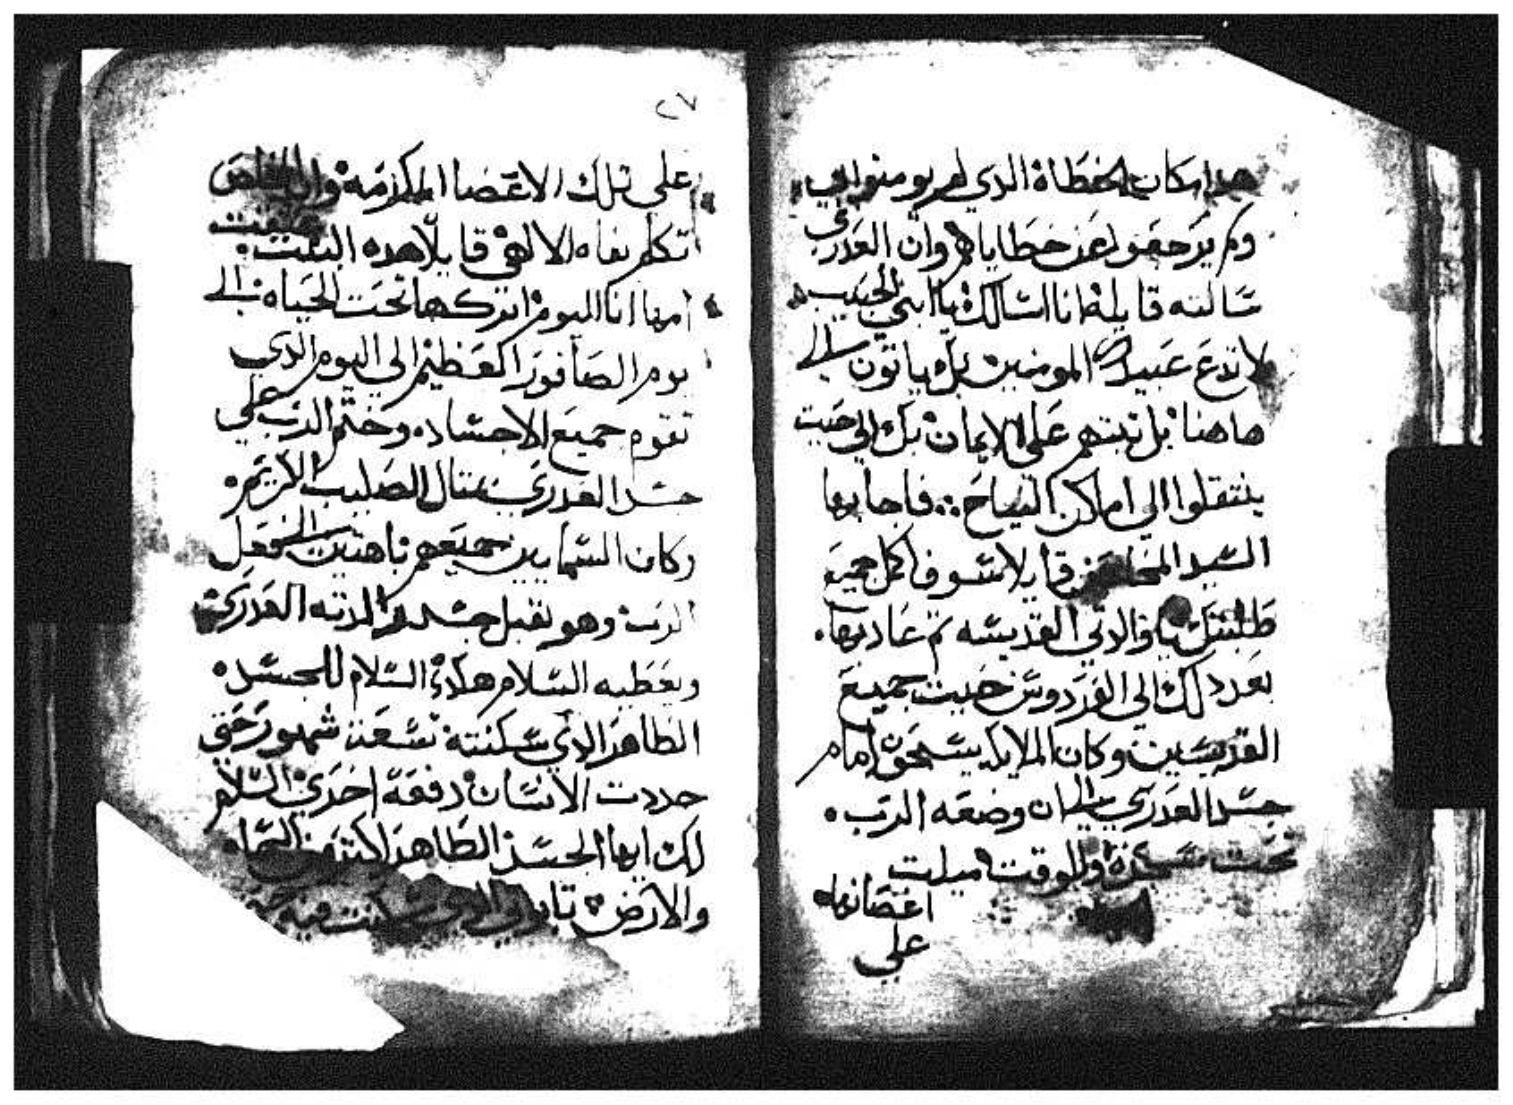 هدا مكان الخطاة الدي لم يومنوا بي
ولم يرجعوا عن خطاياهم وان العدري
سالته قايله انا اسالك يا ابني الحبيب
لا تدع عبيدك المومنين بك ياتون الي
هاهنا بل تبتهم علي الايمان بك الي حيت
ينتقلوا الي اماكن النياح :. فاجابها
السيد المخلص قايلا سوف اكمل جميع
طلبتك يا والدتي القديسه تم عاد بها
بعد دلك الي الفردوس حيت جميع
القديسين وكان الملايكه امام
جسد العدري الي ان وضعه الرب
تحت شجرة وللوقت ميلت
اغصانها
علي
٢٧
علي تلك الاعضا المكرمه وان المخلص
تكلم بفاه الالهي قايلا هده البيت
امها انا اليوم اتركها تحت الحياه الي
يوم الصافور العظيم الي اليوم الدي
تقوم جميع الاجساد وختم الرب علي
جسد العدري بمتال الصليب الكريم
وكان السمايين جميعهم باهتين الي فعل
الرب وهو يقبل جسد والدته العدري
ويعطيه السلام هكدا السلام للجسد
الطاهر الدي سكنته تسعة شهور حتي
جددت الانسان دفعة اخري السلام
لك ايها الجسد الطاهر اكتر من السماء
والارض كنت فيه